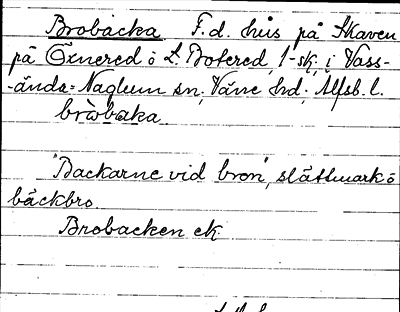 Brobäcka F.d. hus på Skaven
på Öxnered ö L. Botered, 1-sk, i Vass-
-ända-Naglum sn, Väne hd, Älfsb. l.
bròbaka.
"Backarne vid bron", slåttmark ö
bäckbro.
Brobacken ek